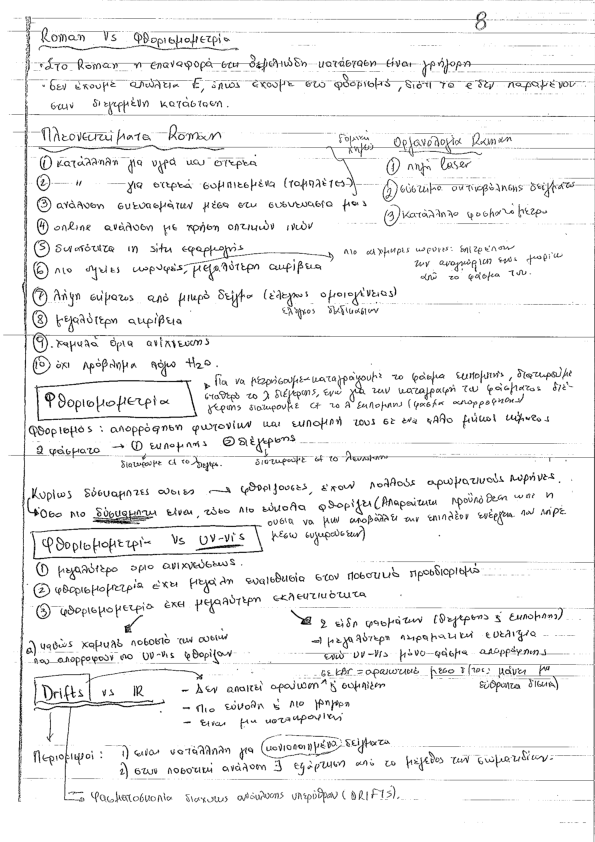 8
Roman Vs Φθορισμομετρία
· Στο Roman η επαναφορά στη θεμελιώδη κατάσταση είναι γρήγορη
· δεν έχουμε απώλεια E, όπως έχουμε στο φθορισμό, διότι το e δεν παραμένει
στην διεγερμένη κατάσταση.
Πλεονεκτήματα Roman
① κατάλληλη για υγρά και στερεά
② " για στερεά συμπιεσμένα (ταμπλέτες)
③ ανάλυση σκευασμάτων μέσα στη συσκευασία μας
④ online ανάλυση με χρήση οπτικών ινών
⑤ δυνατότητα in situ εφαρμογής
⑥ πιο οξείες κορυφές, μεγαλύτερη ακρίβεια
⑦ λήψη σήματος από μικρό δείγμα (έλεγχος ομοιογένειας)
⑧ μεγαλύτερη ακρίβεια
⑨ χαμηλά όρια ανίχνευσης
⑩ όχι πρόβλημα λόγω H₂O.
Οργανολογία Raman
① πηγή laser
② σύστημα ακτινοβόλησης δείγματος
③ κατάλληλο φασματόμετρο
πιο αιχμηρές κορυφές: επιτρέπουν
την αναγνώριση ενός μορίου
από το φάσμα του.
Φθορισμομετρία
Για να μετρήσουμε-καταγράψουμε το φάσμα εκπομπής, διατηρούμε
σταθερό το λ διέγερσης, ενώ για την καταγραφή του φάσματος διέ-
γερσης διατηρούμε ct το λ εκπομπής (φάσμα απορρόφησης)
Φθορισμός: απορρόφηση φωτονίων και εκπομπή τους σε ένα άλλο μήκος κύματος
2 φάσματα → ① εκπομπής ② διέγερσης
διατηρούμε ct το λ διεγερ. διατηρούμε ct το λ εκπομπης
Κυρίως δύσκαμπτες ουσίες → φθορίζουσες, έχουν πολλούς αρωματικούς πυρήνες.
Όσο πιο δύσκαμπτη είναι, τόσο πιο εύκολα φθορίζει (Απαραίτητη προϋπόθεση ώστε η
ουσία να μην αποβάλλει την επιπλέον ενέργεια που πήρε
μέσω συγκρούσεων)
Φθορισμομετρία Vs UV-Vis
① μεγαλύτερο όριο ανιχνεύσεως.
② φθορισμομετρία έχει μεγάλη ευαισθησία στον ποσοτικό προσδιορισμό
③ φθορισμομετρία έχει μεγαλύτερη εκλεκτικότητα
a) καθώς χαμηλό ποσοστό των ουσιών
που απορροφούν στο UV-Vis φθορίζουν
2 είδη φασμάτων (διέγερσης & εκπομπής)
→ μεγαλύτερη πειραματική ευελιξία
ενώ UV-Vis μόνο φάσμα απορρόφησης
Drifts vs IR
- Δεν απαιτεί αραίωση ή συμπίεση
- Πιο εύκολη & πιο γρήγορη
- είναι μη καταστροφική
Περιορισμοί: 1) είναι κατάλληλη για κονιοποιημένα δείγματα
2) στην ποσοτική ανάλυση ∃ εξάρτηση από το μέγεθος των σωματιδίων.
Φασματοσκοπία διάχυτης ανάκλασης υπερύθρου (DRIFTS).